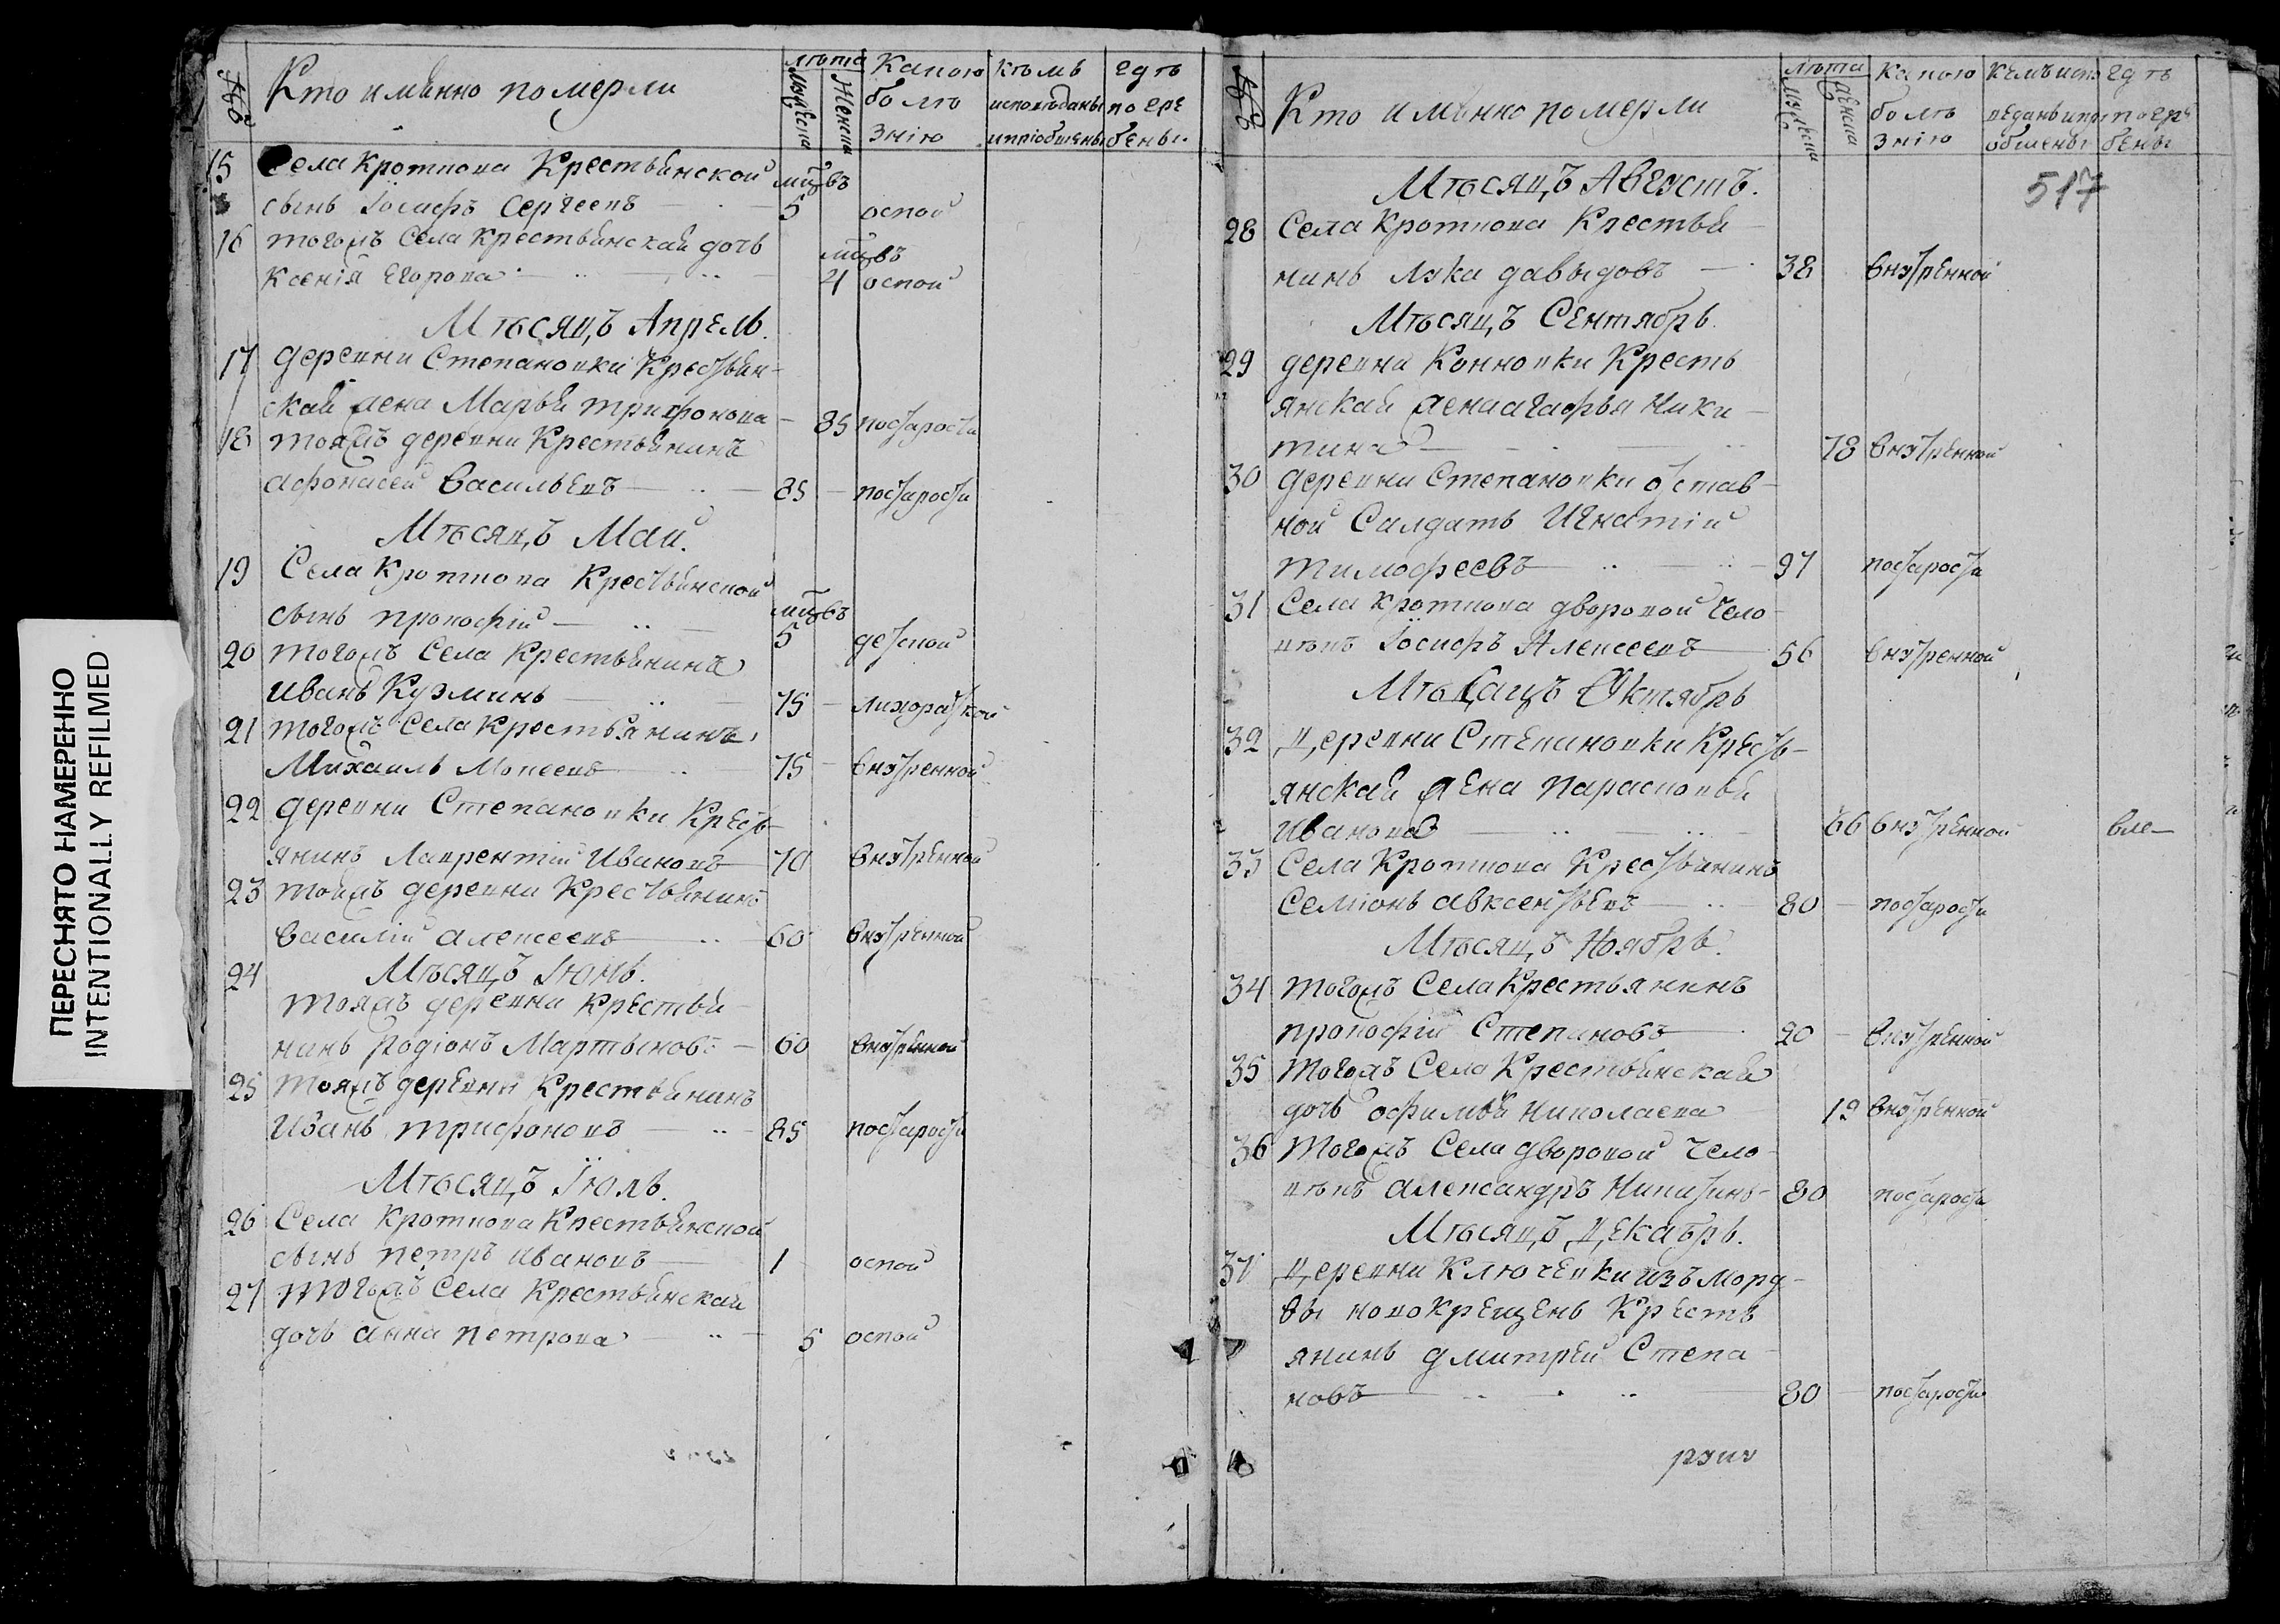 ПЕРЕСНЯТО НАМЕРЕННО
INTENTIONALLY REFILMED
№
Кто имѣнно померли
лѣта
Мужеска
Женска
Какою болѣзнію
кѣмъ исповѣданы и пріобщены
гдѣ погребены
15 Села Кроткова Крестьянской мцвъ
сынъ Іосифъ Сергеевъ 5 оспой
16 тогожъ Села крестьянская дочь мцвъ
Ксенія Егорова 4 оспой
Мѣсяцъ Апрель.
17 деревни Степановки Крестьян-
ская жена Марья трифонова 85 постарости
18 тояжъ деревни Крестьянинъ
афонасей Васильевъ 85 постарости
Мѣсяцъ Май.
19 Села Кроткова Крестьянской
сынъ прокофій мцвъ
5 детской
20 тогожъ Села Крестьянинъ
иванъ Кузминъ 75 лихораткой
21 тогожъ Села крестьянинъ
Михаилъ Мокеевъ 75 внутренной
22 деревни Степановки Кресть-
янинъ Лаврентій Ивановъ 70 внутренной
23 тояжъ деревни Крестьянинъ
Василій алексеевъ 60 внутренной
24 Мѣсяцъ Іюнь.
тояжъ деревни крестья-
нинъ родіонъ Мартыновъ 60 внутренной
25 тояжъ деревни Крестьянинъ
Иванъ трифоновъ 85 постарости
Мѣсяцъ Іюль.
26 Села кроткова Крестьянской
сынъ петръ ивановъ 1 оспой
27 тогожъ Села Крестьянская
дочь анна петрова 5 оспой
№
Кто имѣнно померли
лѣта
мужеска
женска
какою болѣзнію
кемъ исповеданы и приобщены
гдѣ погребены
517
Мѣсяцъ Августъ.
28 Села Кроткова Крестья-
нинъ Лука давыдовъ 38 внутренной
Мѣсяцъ Сентябрь.
29 деревни Конновки Кресть
янская жена агафья Ники-
тина 78 внутренной
30 деревни Степановки отстав-
ной Салдатъ Игнатій
тимофеевъ 97 постарости
31 Села кроткова дворовой чело-
вѣкъ Іосифъ Алексеевъ 56 внутренной
Мѣсяцъ Октябрь
32 Деревни Степановки Кресть-
янская жена парасковья
Иванова 66 внутренной
33 Села Кроткова Крестьянинъ
Семіонъ авксентьевъ 80 постарости
Мѣсяцъ Ноябрь.
34 тогожъ Села Крестьянинъ
прокофій Степановъ 20 внутренной
35 тогожъ Села Крестьянская
дочь офимья николаева 19 внутренной
36 тогожъ Села дворовой чело-
вѣкъ александръ Никитинъ 80 постарости
Мѣсяцъ Декабрь.
37 Деревни Ключевки изъ морд-
вы новокрещенъ Кресть
янинъ дмитрей Степа-
новъ 80 постарости